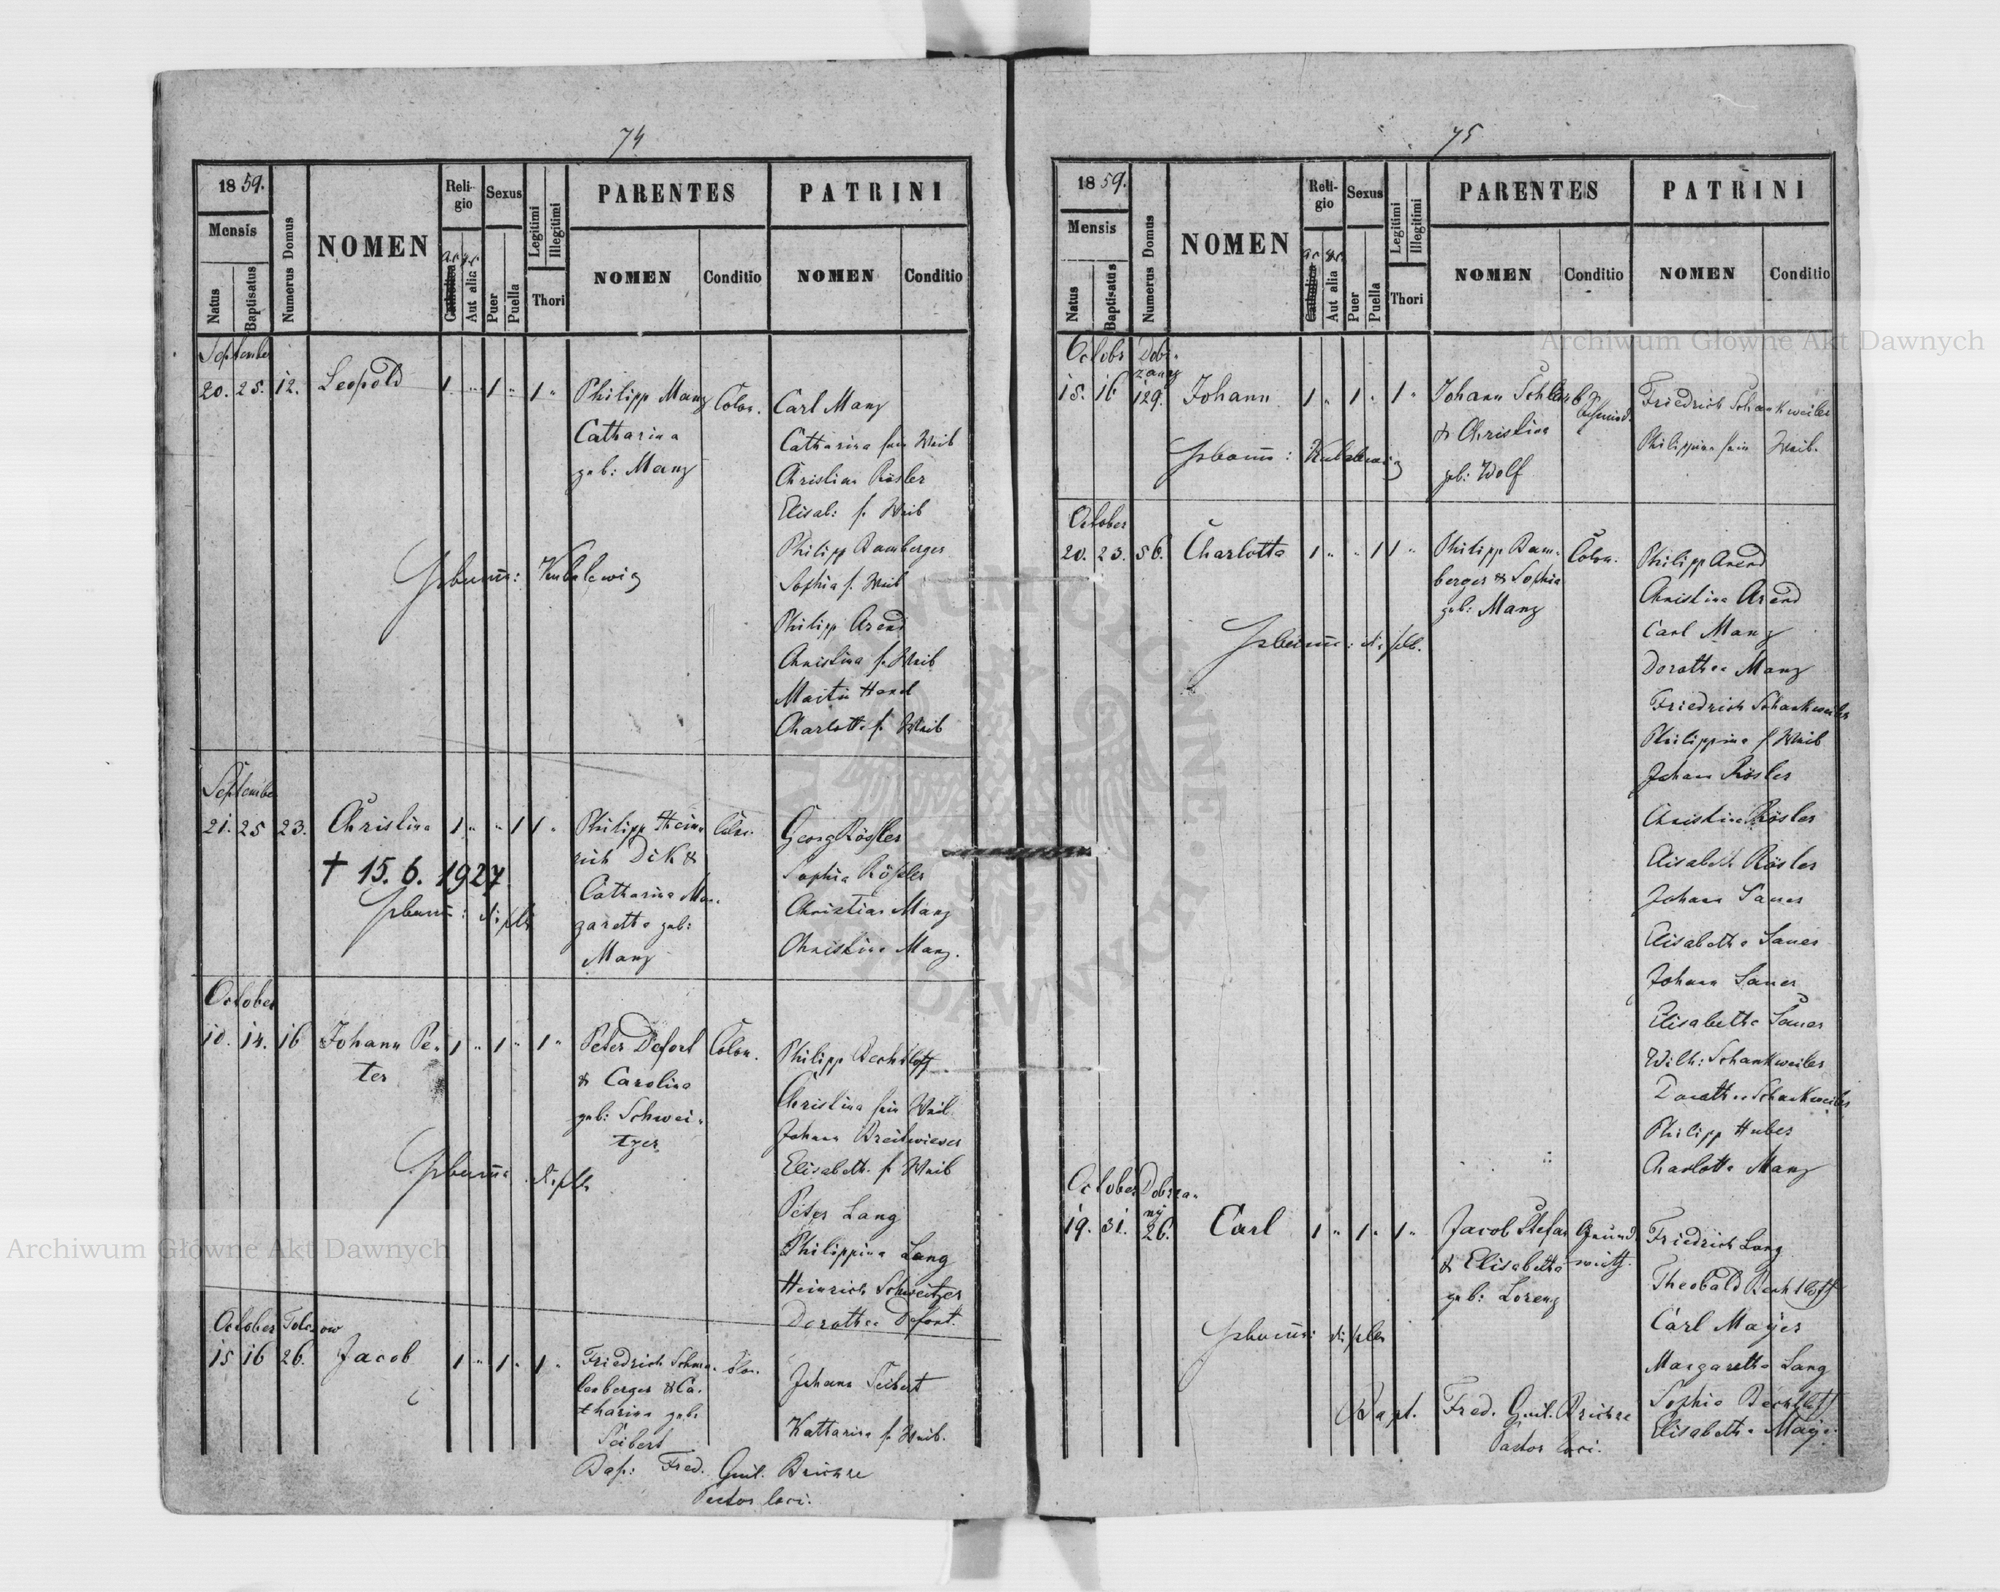 74
18 59.
Mensis
Natus
Baptisatus
Numerus Domus
NOMEN
Reli-
gio
a.c.
Catholica
Aut alia
Sexus
Puer
Puella
Legitimi
Illegitimi
Thori
PARENTES
NOMEN
Conditio
PATRINI
NOMEN
Conditio
September
20. 25. 12. Leopold 1 " 1 " 1 "
Philipp Manz Colon.
Catharina
geb: Manz
Carl Manz
Catharina sein Weib
Christian Rösler
Elisab: s. Weib
Philipp Bamberger
Sophia s. Weib
Philipp Arend
Christina s. Weib
Martin Hand
Charlotte s. Weib
Kubalewig
September
21. 25 23. Christina 1 " " 1 1 "
† 15. 6. 1927
Philipp Hein-
rich Dik &
Catharina Mar-
garetta geb:
Manz
Georg Rößler
Sophia Rößler
Christian Manz
Christina Manz.
October
10. 14. 16 Johann Pe- 1 " 1 " 1 "
ter
Peter Defort Colon.
& Carolina
geb: Schwei-
tzer
Philipp Bechtloff
Christina sein Weib
Johann Breitwieser
Elisabeth. s. Weib
Peter Lang
Philippina Lang
Heinrich Schweitzer
Dorothea Defort.
October
15 16 26. Jacob 1 " 1 " 1 "
Friedrich Schma-
lenberger & Ca-
tharina geb.
Seibert
Johann Seibert
Katharina s. Weib.
Bap: Fred. Guil. Brichze
Pastor loci.
75
18 59.
Mensis
Natus
Baptisatus
Numerus Domus
NOMEN
Reli-
gio
a.c.
Catholica
Aut alia
Sexus
Puer
Puella
Legitimi
Illegitimi
Thori
PARENTES
NOMEN
Conditio
PATRINI
NOMEN
Conditio
Octobr Dobr-
zany
15. 16 129. Johann 1 " 1 " 1 "
Johann Schlarb
& Christina
geb: Wolf
Friedrich Schankweiler
Philippina sein Weib.
Kubalewig
October
20. 23. 56. Charlotta 1 " " 1 1 "
Philipp Bam- Colon.
berger & Sophia
geb: Manz
Philipp Arend
Christina Arend
Carl Manz
Dorothea Manz
Friedrich Schankweiler
Philippina s. Weib
Johann Rösler
Christina Rösler
Elisabeth Rösler
Johann Sauer
Elisabetha Sauer
Johann Sauer
Elisabetha Sauer
Wilh: Schankweiler
Dorothea Schankweiler
Philipp Huber
Charlotta Manz
October Dobrza-
ny
19. 31. 26. Carl 1 " 1 " 1 "
Jacob Stefan Grund-
& Elisabetha wirth.
geb: Lorenz
Friedrich Lang
Theobald Bechtloff
Carl Mayer
Margaretha Lang
Sophia Bechtloff
Elisabetha Mayer
Bapt. Fred. Guil. Brichze
Pastor loci.
Archiwum Główne Akt Dawnych
Archiwum Główne Akt Dawnych